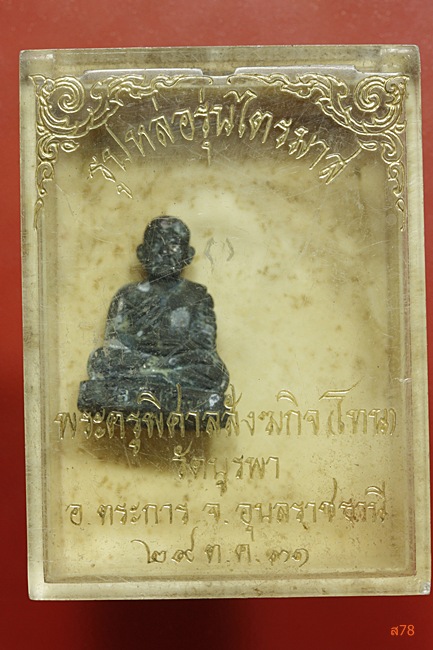 รูปหล่อรุ่นไตรมาส
พระครูพิศาลสังฆกิจ (โทน)
วัดบูรพา
อ.ตระการ จ.อุบลราชธานี
๒๙ ต.ค. ๓๑
ส78